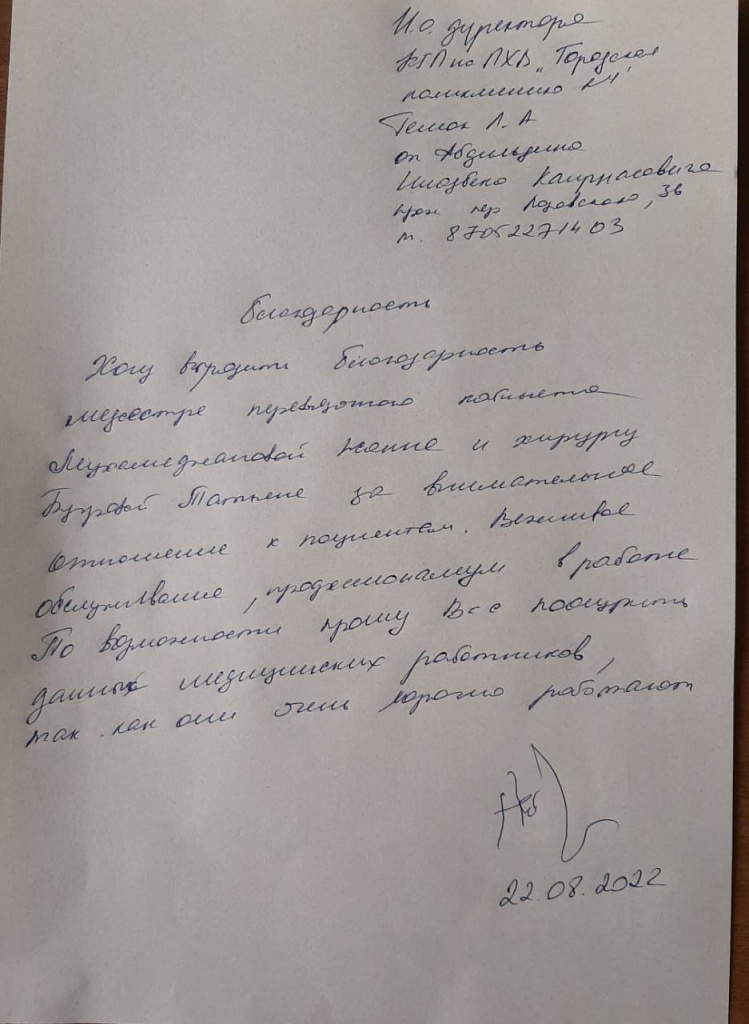 И.о. директора
КГП на ПХВ „Городская
поликлиника №4"
Гелюк Л. А
от Абдильдина
Кайрнасовича
прож пер 36
т. 87052271403
благодарность
Хочу выразити благодарность
медсестре перевязочного кабинета
Мухамеджановой Жанне и хирургу
Татьяне за внимательное
отношение к пациентам. Вежливое
обслуживание, профессионализм в работе
По возможности прошу Вас поощрить
данных медицинских работников,
так как они очень хорошо работают
22.08.2022